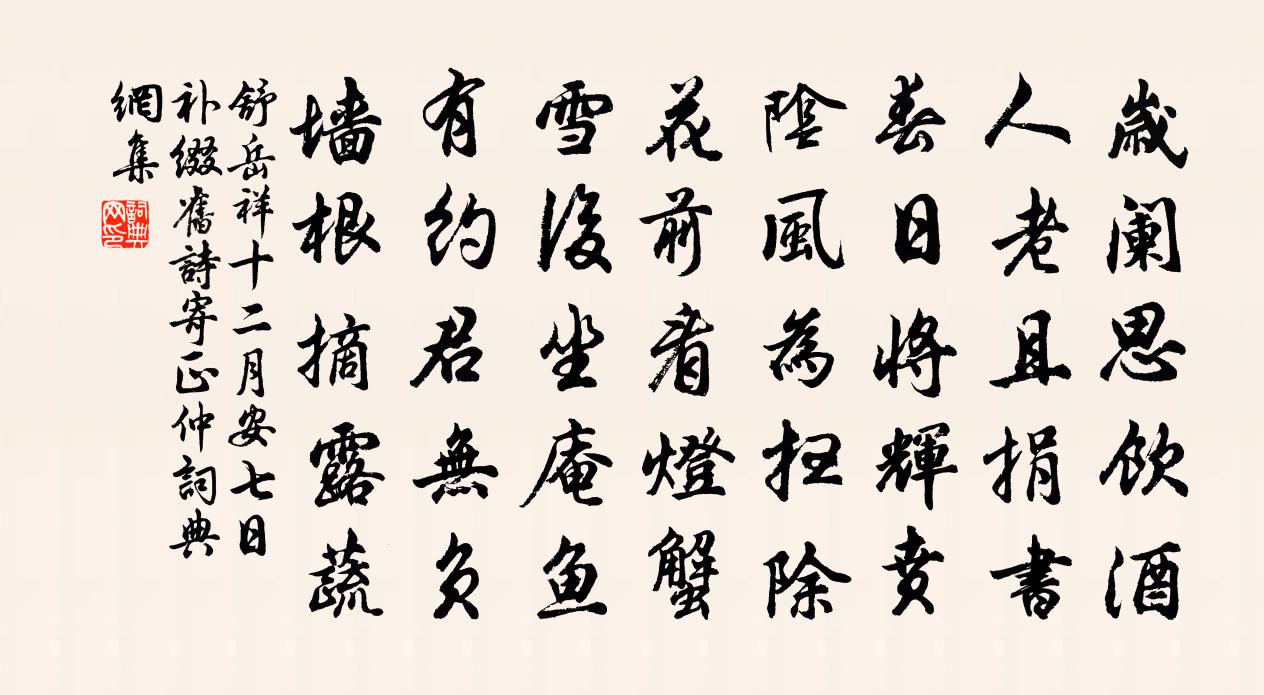 歲阑思飲酒
人老且捐書
春日將輝賁
陰風為扫除
花前看燈蟹
雪後坐庵鱼
有約君無负
墙根摘露蔬
舒岳祥十二月安七日
补缀舊詩寄正仲詞典
網集
詞典網印